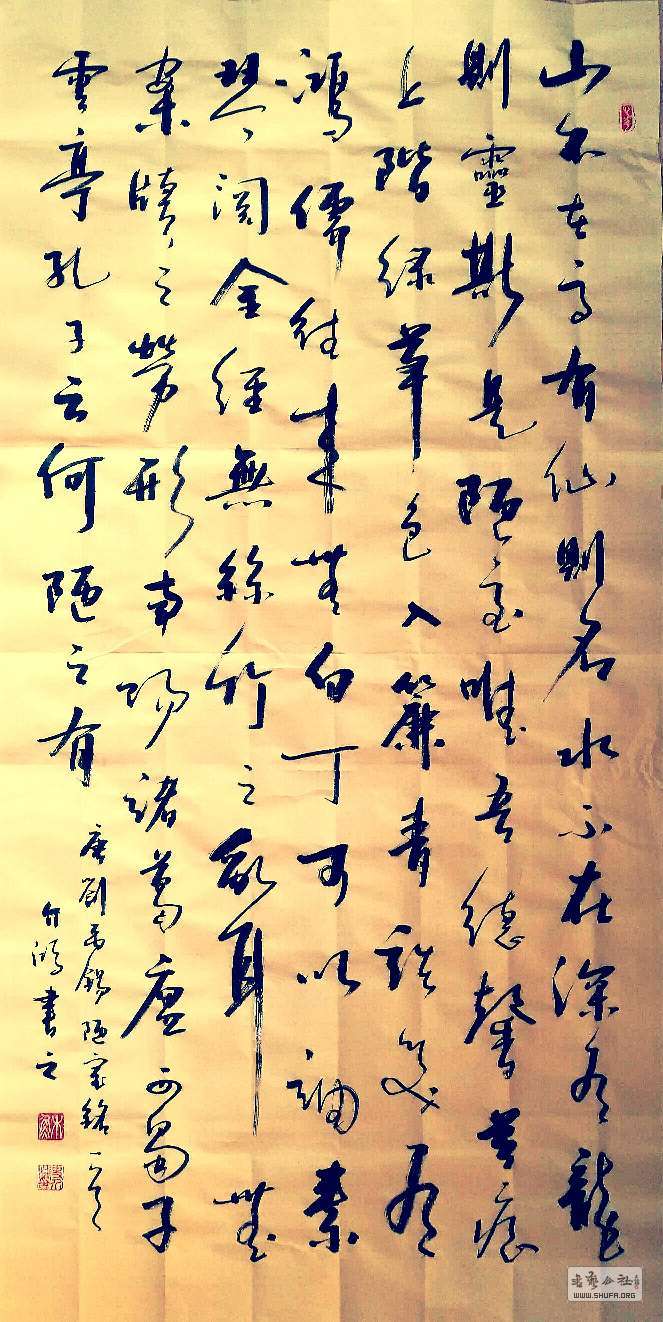 山不在高有仙則名水不在深有龍
則靈斯是陋室唯吾德馨苔痕
上階綠草色入簾青談笑有
鴻儒往來無白丁可以調素
琴閱金經無絲竹之亂耳無
案牘之勞形南陽諸葛廬西蜀子
雲亭孔子云何陋之有
唐劉禹錫陋室銘一
鴻書之
书艺公社
WWW.SHUFA.ORG